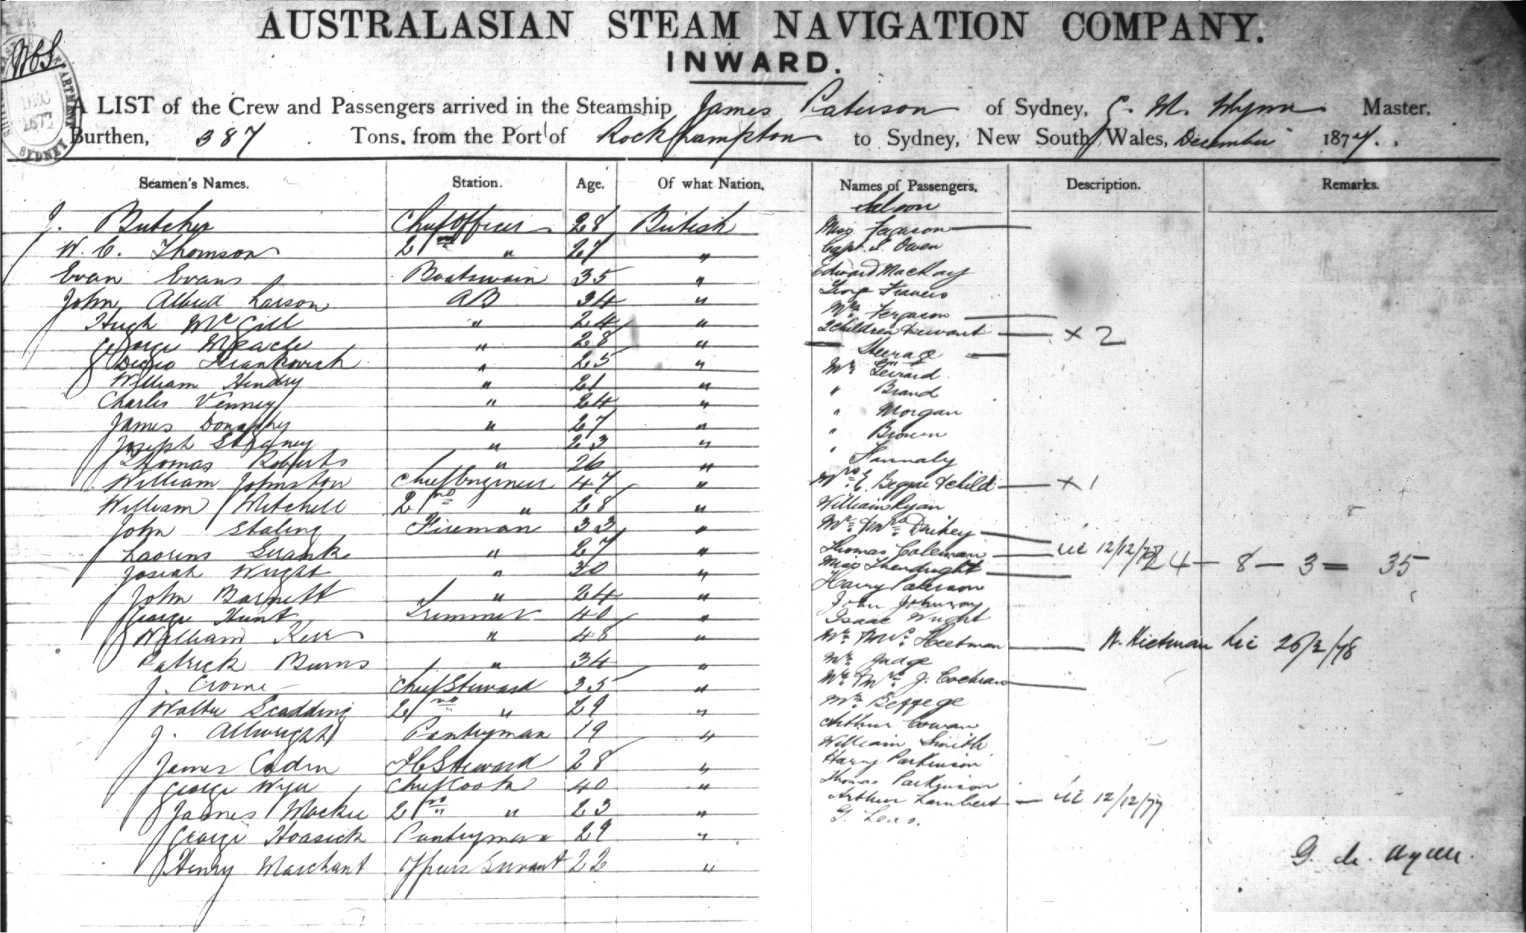 AUSTRALASIAN STEAM NAVIGATION COMPANY.
INWARD.
A LIST of the Crew and Passengers arrived in the Steamship James Paterson of Sydney, G. M. Wynn Master.
Burthen, 387 Tons, from the Port of Rockhampton to Sydney, New South Wales, December 1877.
SYDNEY
Seamen's Names. Station. Age. Of what Nation.
J. Butcher Chief Officer 28 British
W. C. Thomson 2nd " 27 "
Evan Evans Boatswain 35 "
John Alfred Larson AB 34 "
Hugh McGill " 24 "
George " 28 "
" 25 "
William Hendry " 21 "
Charles Venney " 24 "
James Donaghy " 27 "
Joseph " 23 "
Thomas Roberts " 26 "
William Johnston Chief Engineer 47 "
William Mitchell 2nd " 28 "
John Fireman 33 "
" 27 "
Josiah Wright " 30 "
John Barnett " 24 "
George Hunt Trimmer 40 "
William Kerr " 48 "
Patrick Burns " 34 "
J. Chief Steward 35 "
Walter Scadding 2nd " 29 "
J. Allwright Pantryman 19 "
James Steward 28 "
George Chief Cook 40 "
James Mackie 2nd " 23 "
George Pantryman 29 "
Henry Marchant Officers Servant 22 "
Names of Passengers, Description. Remarks.
Saloon
Miss
Capt. Owen
Edward Mackay
George Francis
Mrs Ferguson
2 children & servant — x 2
Steerage
Mr
" Brand
" Morgan
" Brown
"
Mrs E. & child — x 1
William Ryan
Mr & Mrs
Thomas Coleman — 12/12/78
24 — 8 — 3 = 35
Miss
Harry Paterson
John Johnson
Isaac Wright
Mr & Mrs Heetman — 26/2/78
Mr Judge
Mr & Mrs J. Cochran
Mr
Arthur Cowan
William Smith
Harry Parkinson
Thomas Parkinson
Arthur Lambert — 12/12/77
G.
G. M. Wynn.